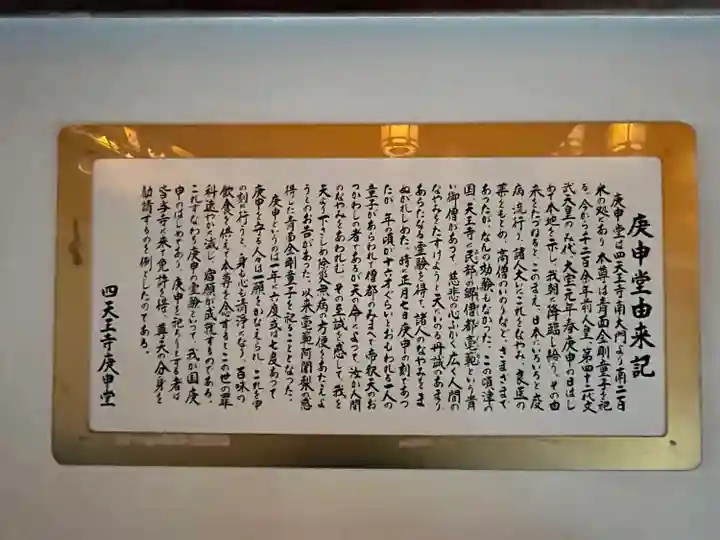 庚申堂由来記
庚申堂は四天王寺南大門より南二百
米の処にあり 本尊は青面金剛童子を祀
る。今から千二百余年前人皇、第四十二代文
武天皇のみ代、大宝元年春庚申の日はじ
めて本地を示し、我朝に降臨し給う。その由
来をたづねると、このまえ、日本にいろいろと疫
病流行り、諸人大いにこれをなやみ、良医の
薬をもとめ、高僧のいのりなど、さまざまで
あったが、なんの効験もなかった。この頃、津の
国、天王寺に民部の卿僧都毫範という貴
い御僧があって、慈悲の心ふかく、広く人間の
なやみをたすけようと天にいのる丹誠のあまり
あらたなる霊験を得て、諸人のなやみをま
ぬがれしめた。時に正月七日庚申の刻であっ
たが、年の頃が十六才ぐらいとおもわれる一人の
童子があらわれて僧都のみまへで帝釈天のお
つかわしの者であるが天の命によって、汝が人間
のなやみをあわれむ、その至誠を感じて、我を
天よりでさしめ除災無病の方便をあたえよ
うとのお告があった。以来毫範阿闍梨の感
得した青面金剛童子を祀ることとなった。
庚申というのは一年に六度或は七度あって
庚申を守る人々は一願をかなえられ、これを申
の刻に行うと、身も心も清浄になり、百味の
飲食を供えて本尊を念ずるとこの世の罪
科速やかに滅し、宿願が成就するのである。
これすなわち庚申の霊験といって、我が国庚
申のはじめであり、庚申を祀ろうとする者は
皆当寺に来て免許を得、尊天の分身を
勧請するのを例としたのである。
四天王寺庚申堂